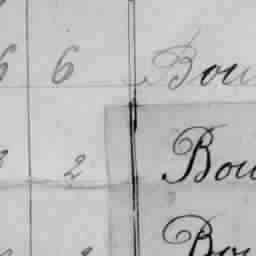 6 6 Bou
2 Bou
Bou